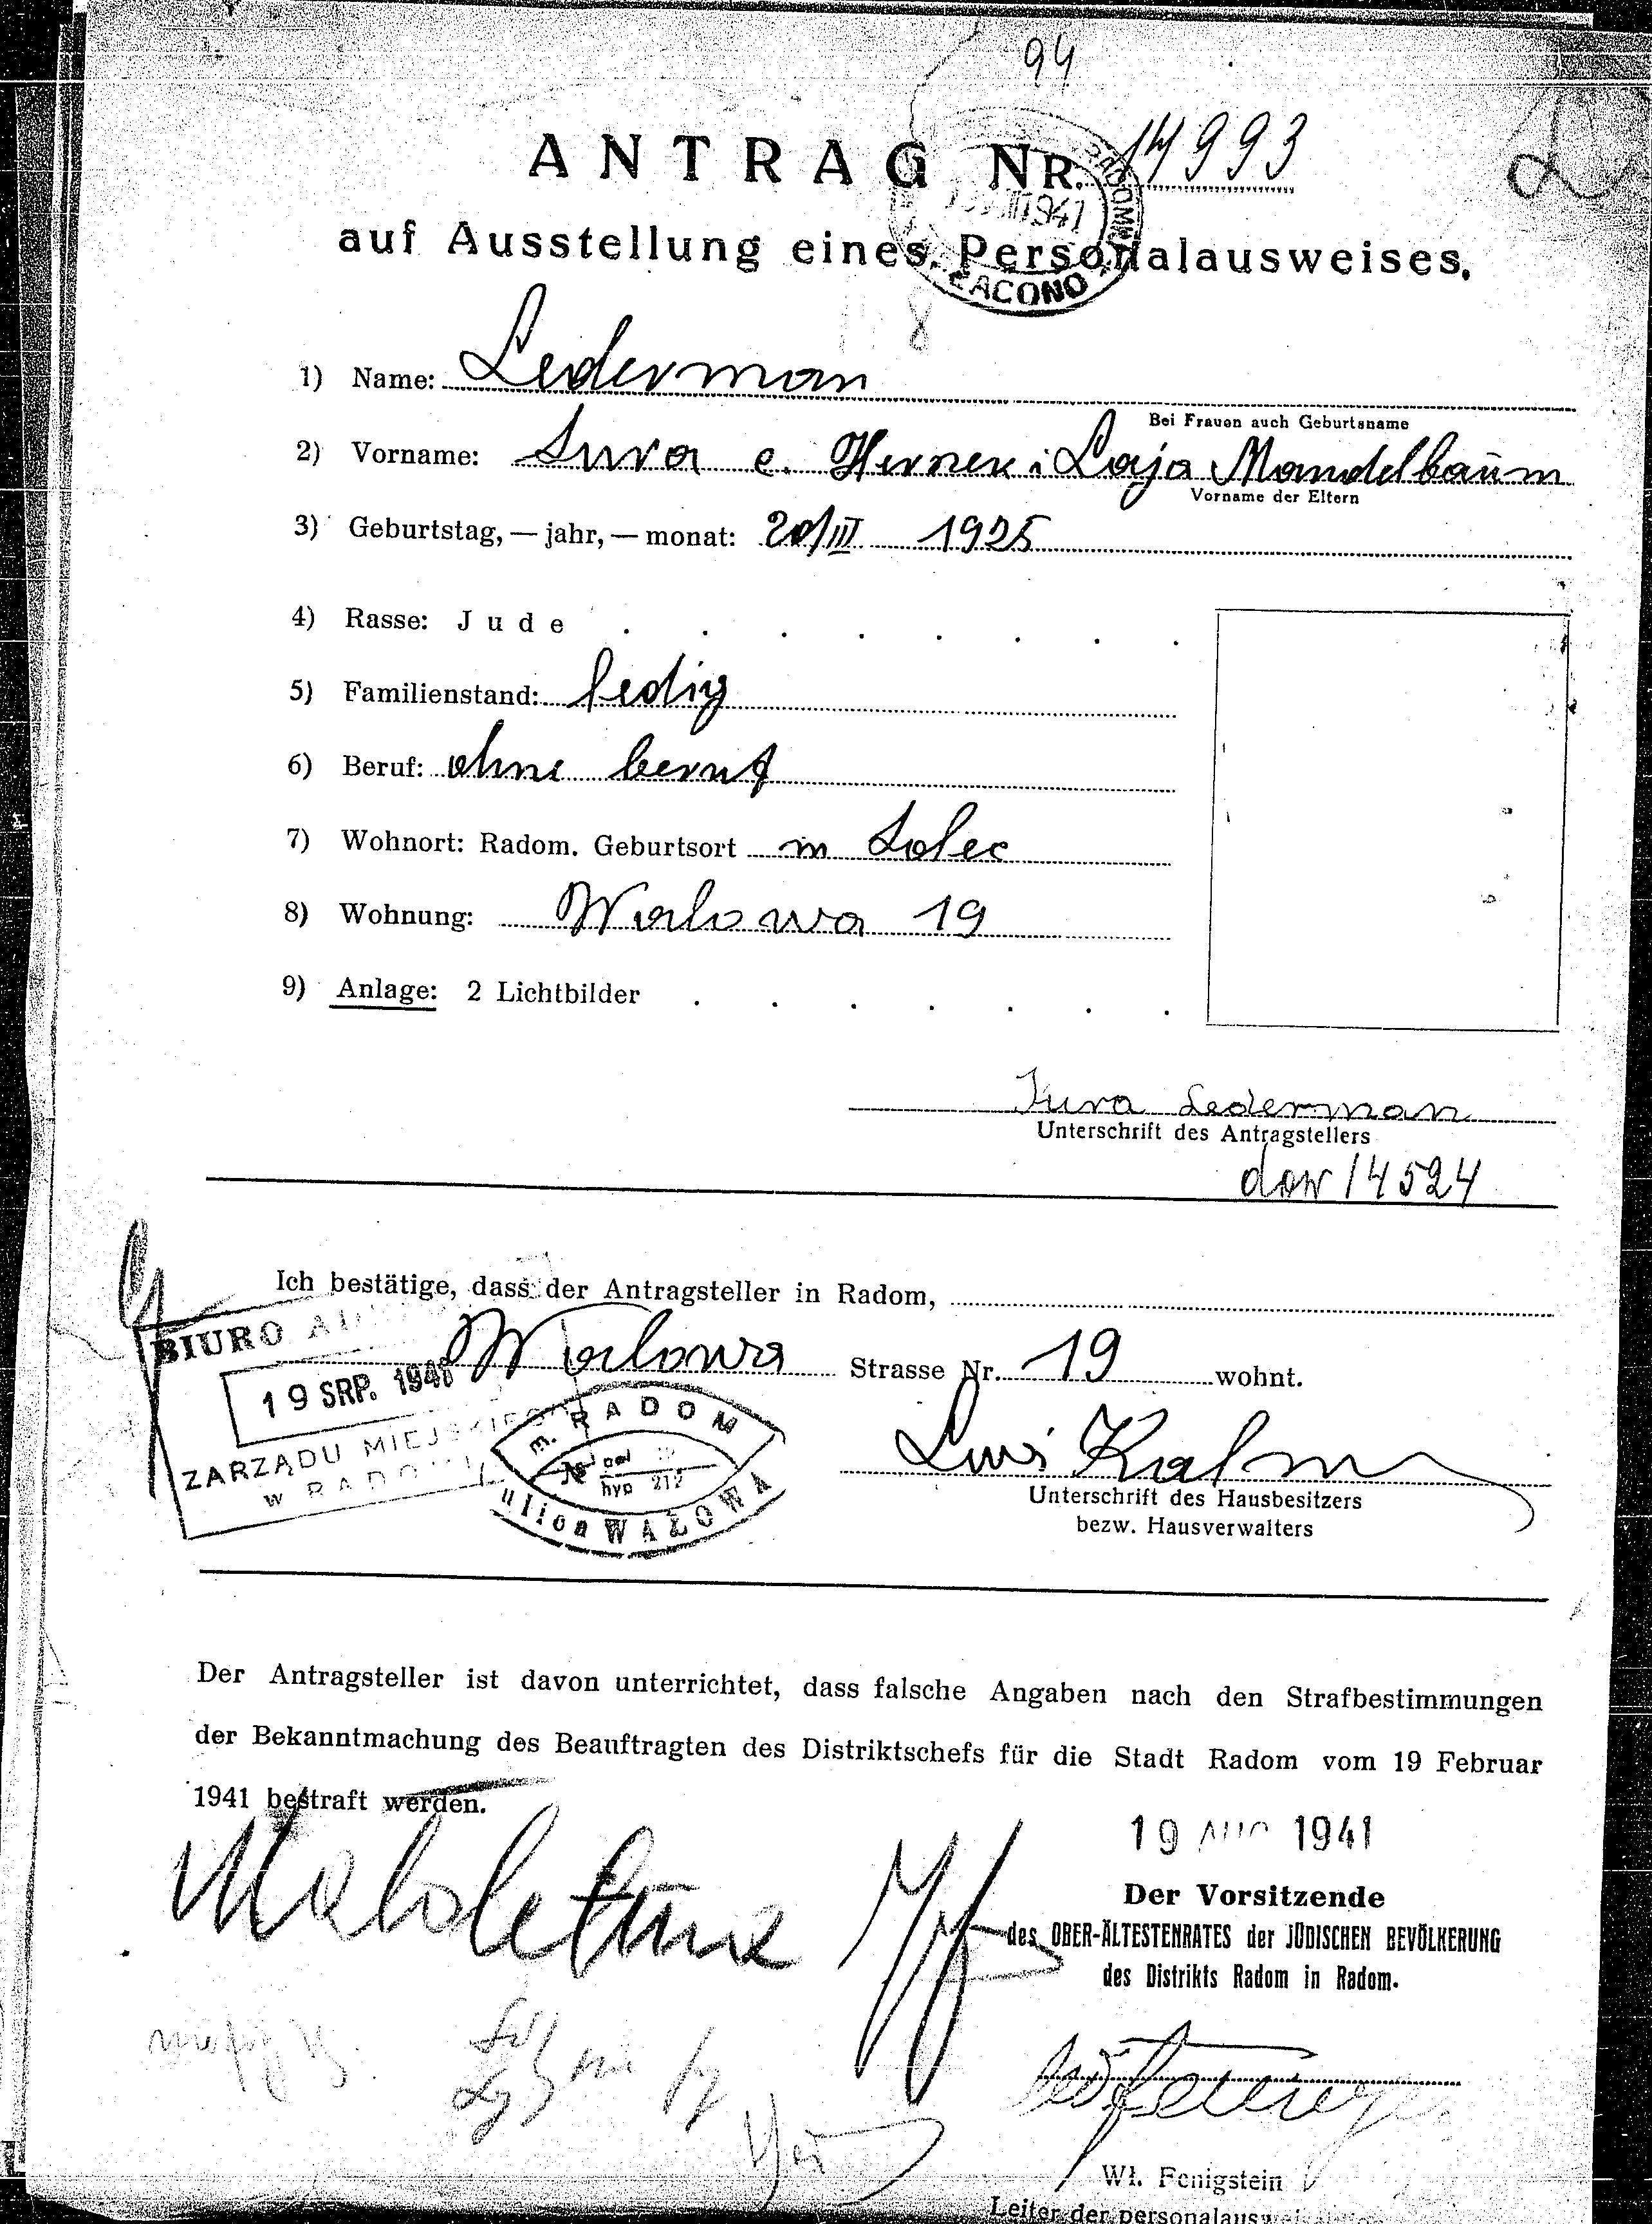 94
ANTRAG NR. 14993
1941
ZACONO
auf Ausstellung eines Personalausweises.
8
1) Name: Lederman
Bei Frauen auch Geburtsname
2) Vorname: Sura c. i Laja Mandelbaum
Vorname der Eltern
3) Geburtstag, — jahr, — monat: 20/III 1925
4) Rasse: Jude
5) Familienstand: ledig
6) Beruf: ohne beruf
7) Wohnort: Radom. Geburtsort in Solec
8) Wohnung: Walowa 19
9) Anlage: 2 Lichtbilder
Sura Lederman
Unterschrift des Antragstellers
dow 14524
Ich bestätige, dass der Antragsteller in Radom,
Walowa Strasse Nr. 19 wohnt.
BIURO
19 SRP. 1941
ZARZĄDU MIEJSKIEGO
w RADOMIU
m. RADOM
hyp 212
ulica WAŁOWA
Unterschrift des Hausbesitzers
bezw. Hausverwalters
Der Antragsteller ist davon unterrichtet, dass falsche Angaben nach den Strafbestimmungen
der Bekanntmachung des Beauftragten des Distriktschefs für die Stadt Radom vom 19 Februar
1941 bestraft werden.
19 AUG 1941
Małoletnia
Der Vorsitzende
des OBER-ÄLTESTENRATES der JÜDISCHEN BEVÖLKERUNG
des Distrikts Radom in Radom.
Wł. Fenigstein
Leiter der personalausweis